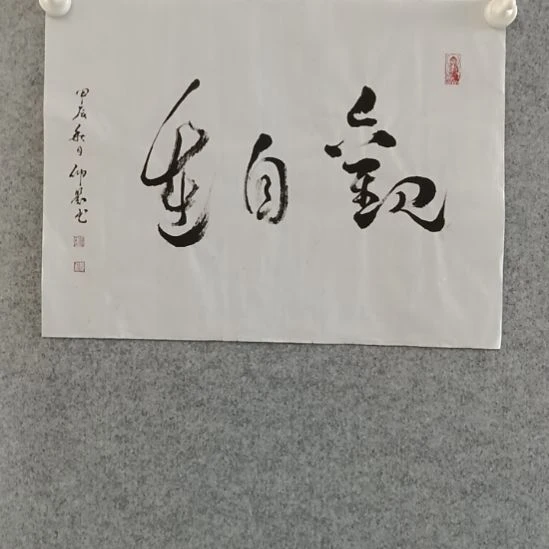 觀自在
甲辰秋日仰墨书